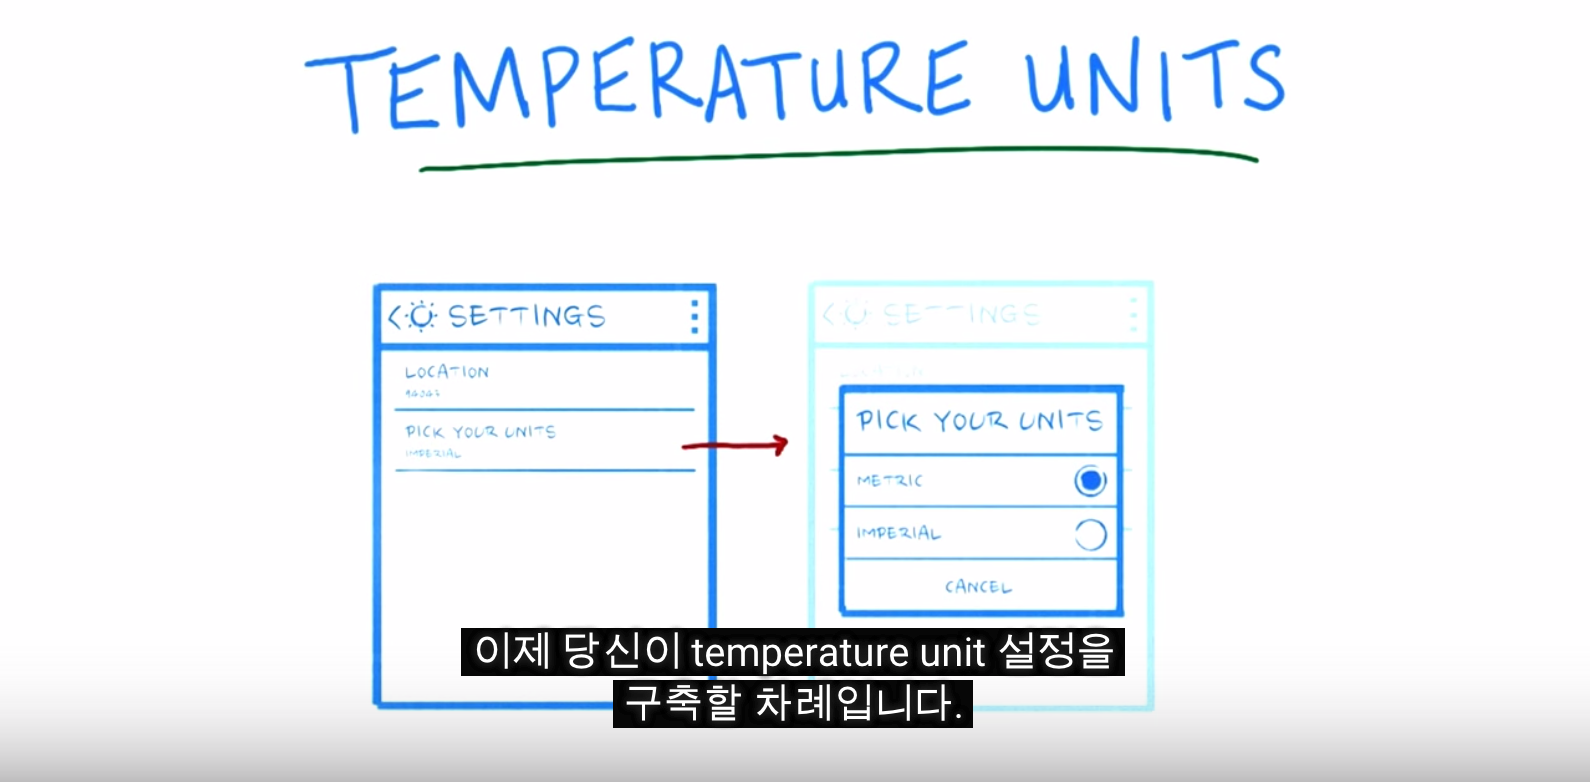 TEMPERATURE UNITS
SETTINGS
LOCATION
94043
PICK YOUR UNITS
IMPERIAL
SETTINGS
LOCATION
PICK YOUR UNITS
METRIC
IMPERIAL
CANCEL
이제 당신이 temperature unit 설정을
구축할 차례입니다.